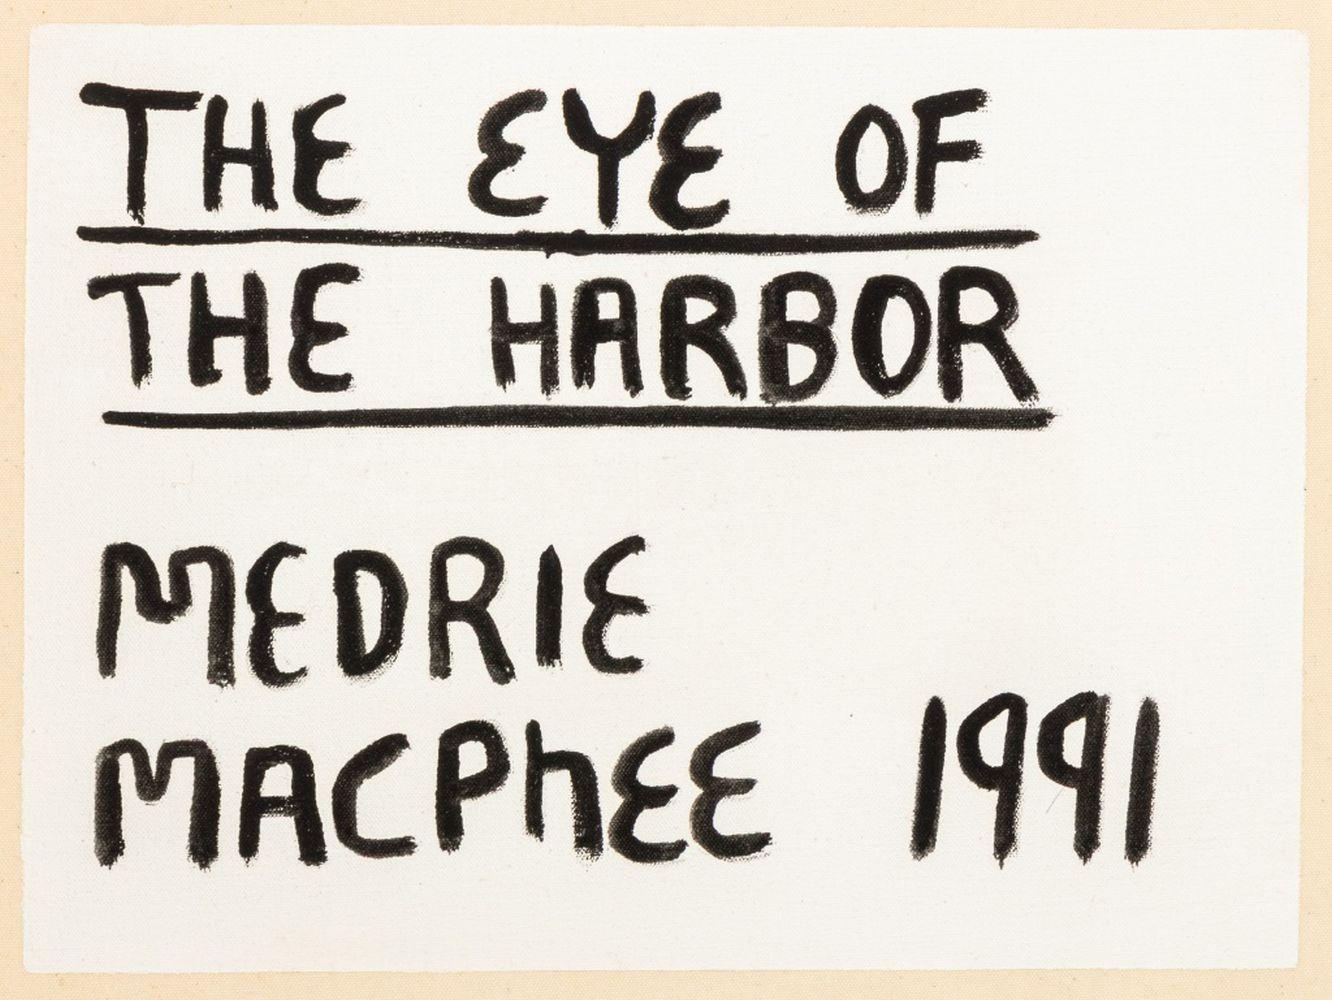 THE EYE OF
THE HARBOR
MEDRIE
MACPhEE 1991